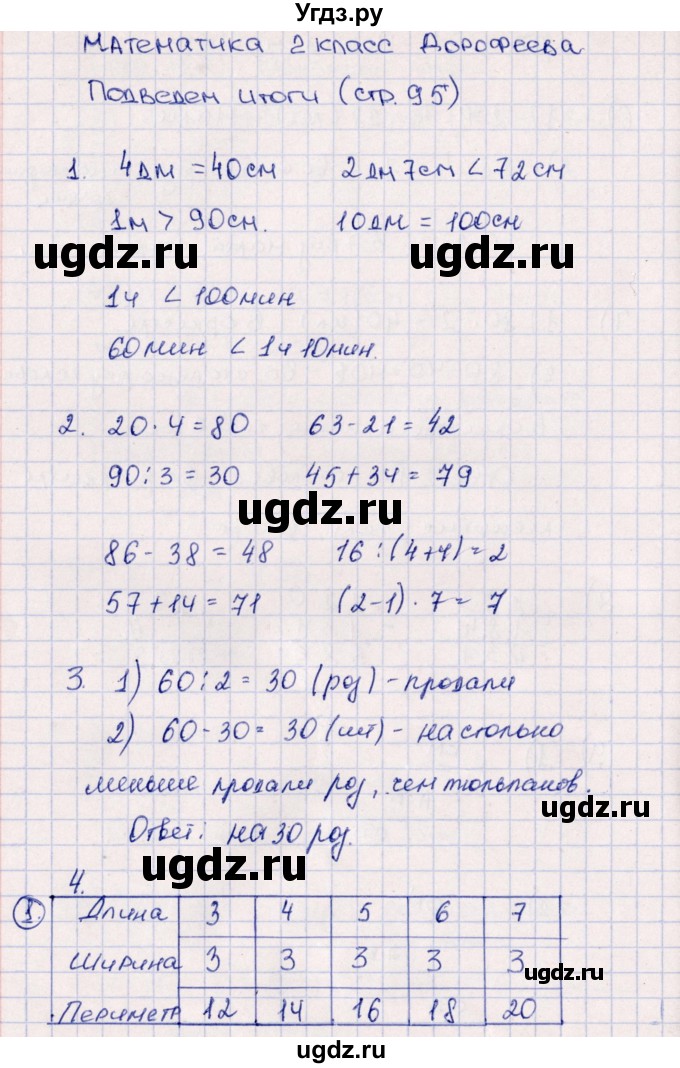 Угдз.ру
Математика 2 класс Дорофеева
Подведем итоги (стр. 95)
1. 4дм = 40см 2дм 7см < 72см
1м > 90см. 10дм = 100см
ugdz.ru ugdz.ru
1ч < 100мин
60мин < 1ч 10мин.
2. 20·4=80 63-21=42
90:3=30 45+34=79
ugdz.ru
86-38=48 16:(4+4)=2
57+14=71 (2-1)·7=7
3. 1) 60:2=30 (роз) - продали
2) 60-30=30 (шт) - на столько
меньше продали роз, чем тюльпанов.
ugdz.ru
Ответ: на 30 роз.
ugdz.ru
4.
1. Длина 3 4 5 6 7
Ширина 3 3 3 3 3
ugdz.ru
Периметр 12 14 16 18 20
ugdz.ru